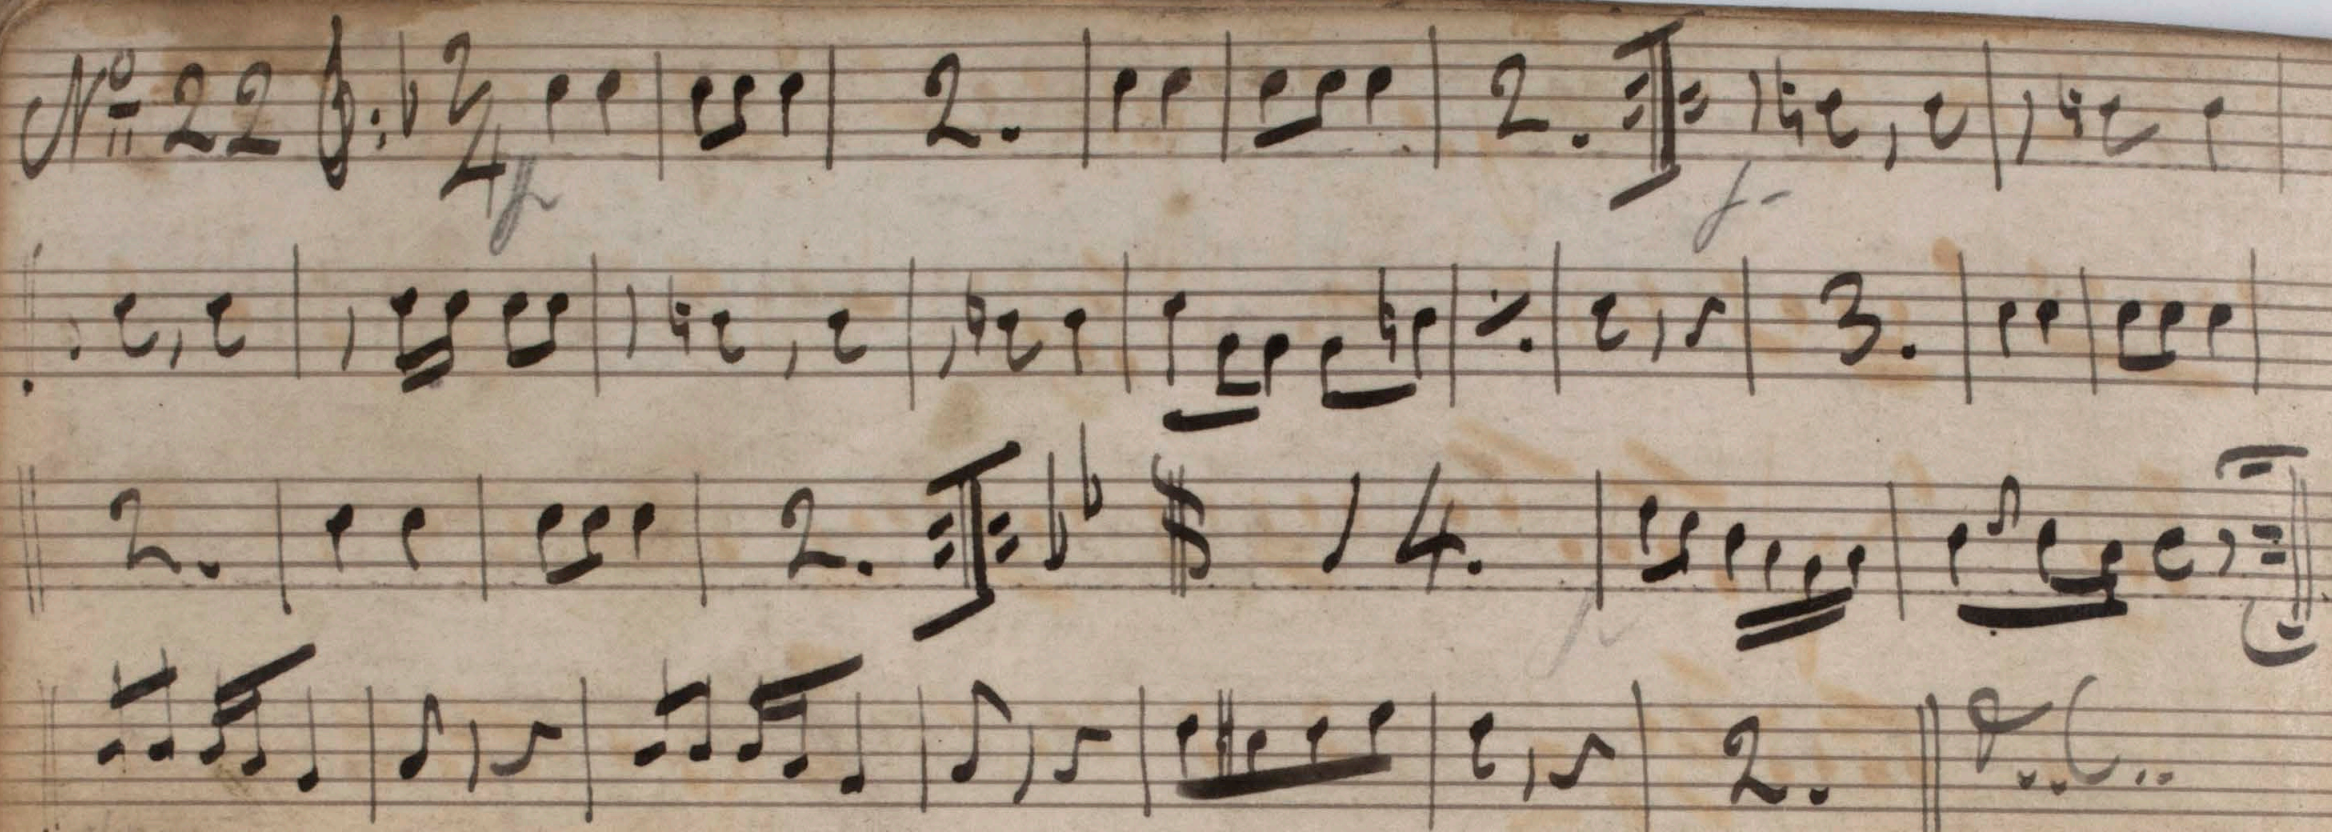 Nº 22 2/4 2. 2.
3.
2. 2. 14.
2. D. C.